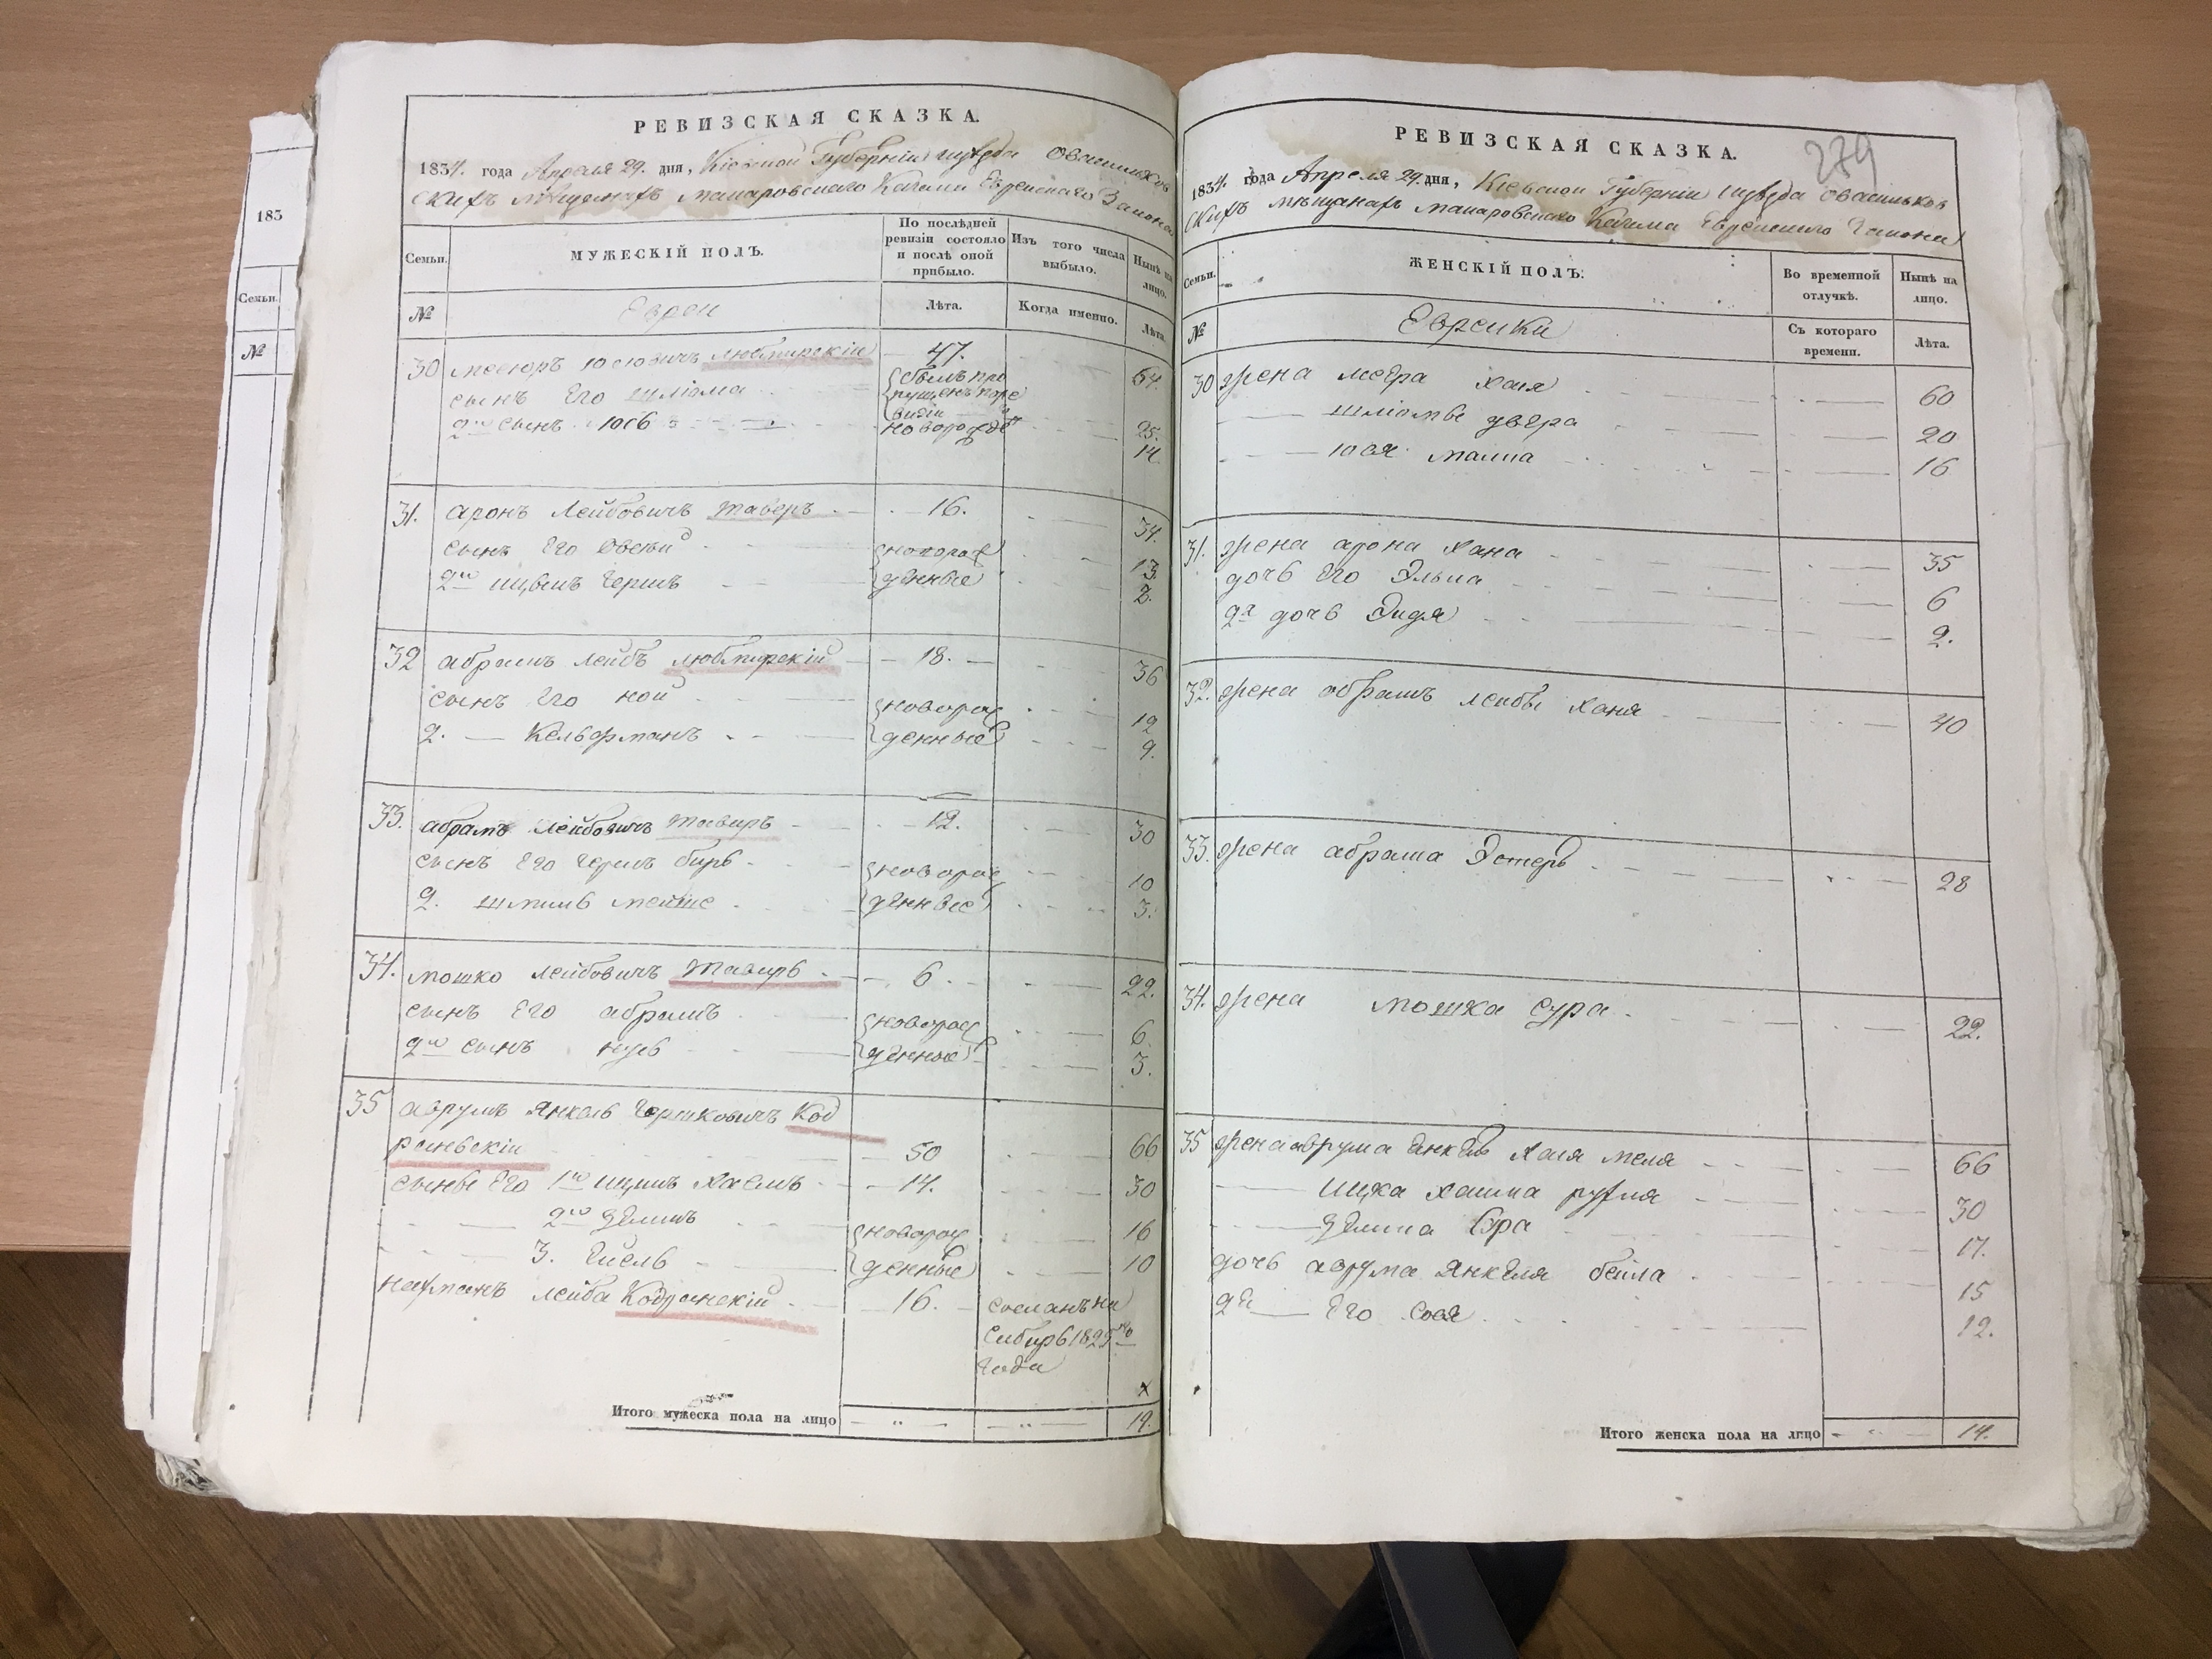 183
Семьи.
№
РЕВИЗСКАЯ СКАЗКА.
1834. года Апреля 29. дня, Кіевской Губерніи уезда Овасильков
скихъ мѣщанахъ макаровскаго Кагала Еврейскаго Закона
Семьи.
МУЖЕСКІЙ ПОЛЪ.
По послѣдней ревизіи состояло и послѣ оной прибыло.
Изъ того числа выбыло.
Нынѣ на лицо.
№
Евреи
Лѣта.
Когда именно.
Лѣта.
30 Юсіовичъ Любмирскій 47. 64.
сынъ Его шліома {былъ про пущенъ по ре визіи 25.
2й сынъ Юсь новорожд 14
31. аронъ Лейбовичъ Таверъ 16. 34.
сынъ Его Овсей {новорож 13.
2й ицыкъ Гершъ {денные 2.
32 абрамъ Лейбъ Любмирскій 18. 36
сынъ Его ной {новорож 12
2. Кельфманъ {денные 9.
33. абрамъ Лейбовичъ Тавиръ 12. 30
сынъ Его Гершъ беръ {новорож 10
2. шмиль мейше {денные 3.
34. мошко лейбовичъ Тавиръ 6. 22.
сынъ Его абрамъ {новорож 6.
2й сынъ {денные 3.
35 аврумъ Янкель Гершковичъ Код
ранвскій 50 66
сыны Его 1й ицикъ Хаемъ 14. 30
2й Зеликъ {новорож 16
3. {денные 10
нахманъ лейба Кодранскій 16. сосланъ на
Сибирь 1825го
Года
Итого мужеска пола на лицо 19.
279
РЕВИЗСКАЯ СКАЗКА.
1834. года Апреля 29. дня, Кіевской Губерніи уезда Овасильков
скихъ мѣщанахъ макаровскаго Кагала Еврейскаго Закона
Семьи.
ЖЕНСКІЙ ПОЛЪ.
Во временной отлучкѣ.
Нынѣ на лицо.
№
Еврейки
Съ котораго времени.
Лѣта.
30 жена меера хая 60
шліомы двера 20
юся малка 16
31. жена арона хана 35
дочь Его Элька 6
2я дочь Эидя 2.
32. жена абрамъ лейбы ханя 40
33. жена абрама Эстеръ 28
34. жена мошка сура 22.
35 жена аврума Янкеля хая меля 66
ицка хаима рухля 30
Зелика Сура 17.
дочь аврума Янкеля бейла 15
2я Его сося 12.
Итого женска пола на лицо 14.